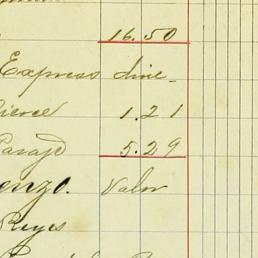 16.50
Express dine
Pierce 1.21
Pasaje 5.29
enzo. Valor
Reyes